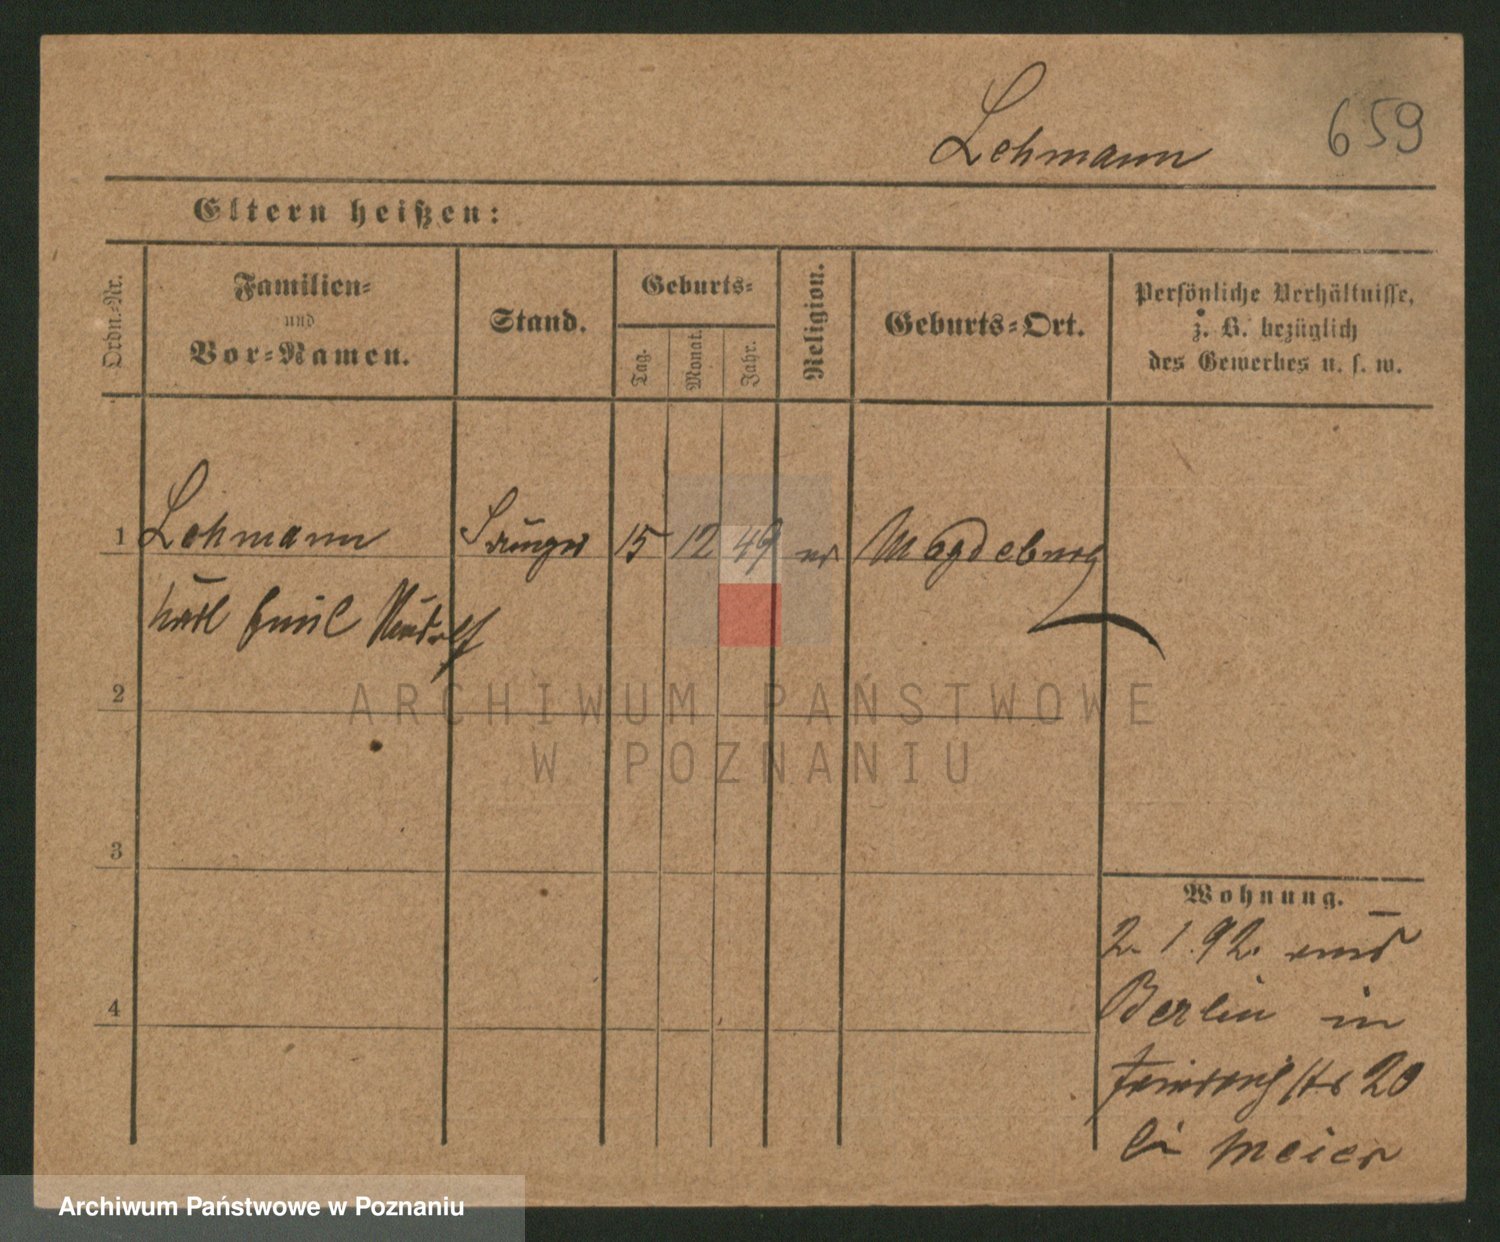 Lehmann
659
Eltern heißen:
Ordn.-Nr.
Familien-
und
Vor-Namen.
Stand.
Geburts-
Tag.
Monat.
Jahr.
Religion.
Geburts-Ort.
Persönliche Verhältnisse,
z. B. bezüglich
des Gewerbes u. s. w.
1 Lehmann Sänger 15 12 49 ev Magdeburg
Karl Emil Rudolf
2
ARCHIWUM PAŃSTWOWE
W POZNANIU
3
Wohnung.
2. 1. 92. aus
Berlin in
4
Friedrichstr 20
bei Meier
Archiwum Państwowe w Poznaniu